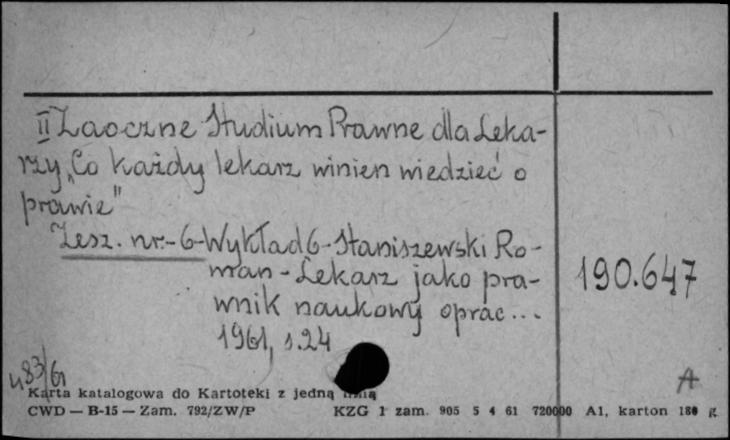 II Zaoczne Studium Prawne dla Leka-
rzy „Co każdy lekarz winien wiedzieć o
prawie"
Zesz. nr-6-Wykład 6-Staniszewski Ro-
man-Lekarz jako pra-
wnik naukowy oprac...
1961, s.24
190.647
483/61
A
Karta katalogowa do Kartoteki z jedną linią
CWD — B-15 — Zam. 792/ZW/P KZG 1 zam. 905 5 4 61 720000 A1, karton 180 g